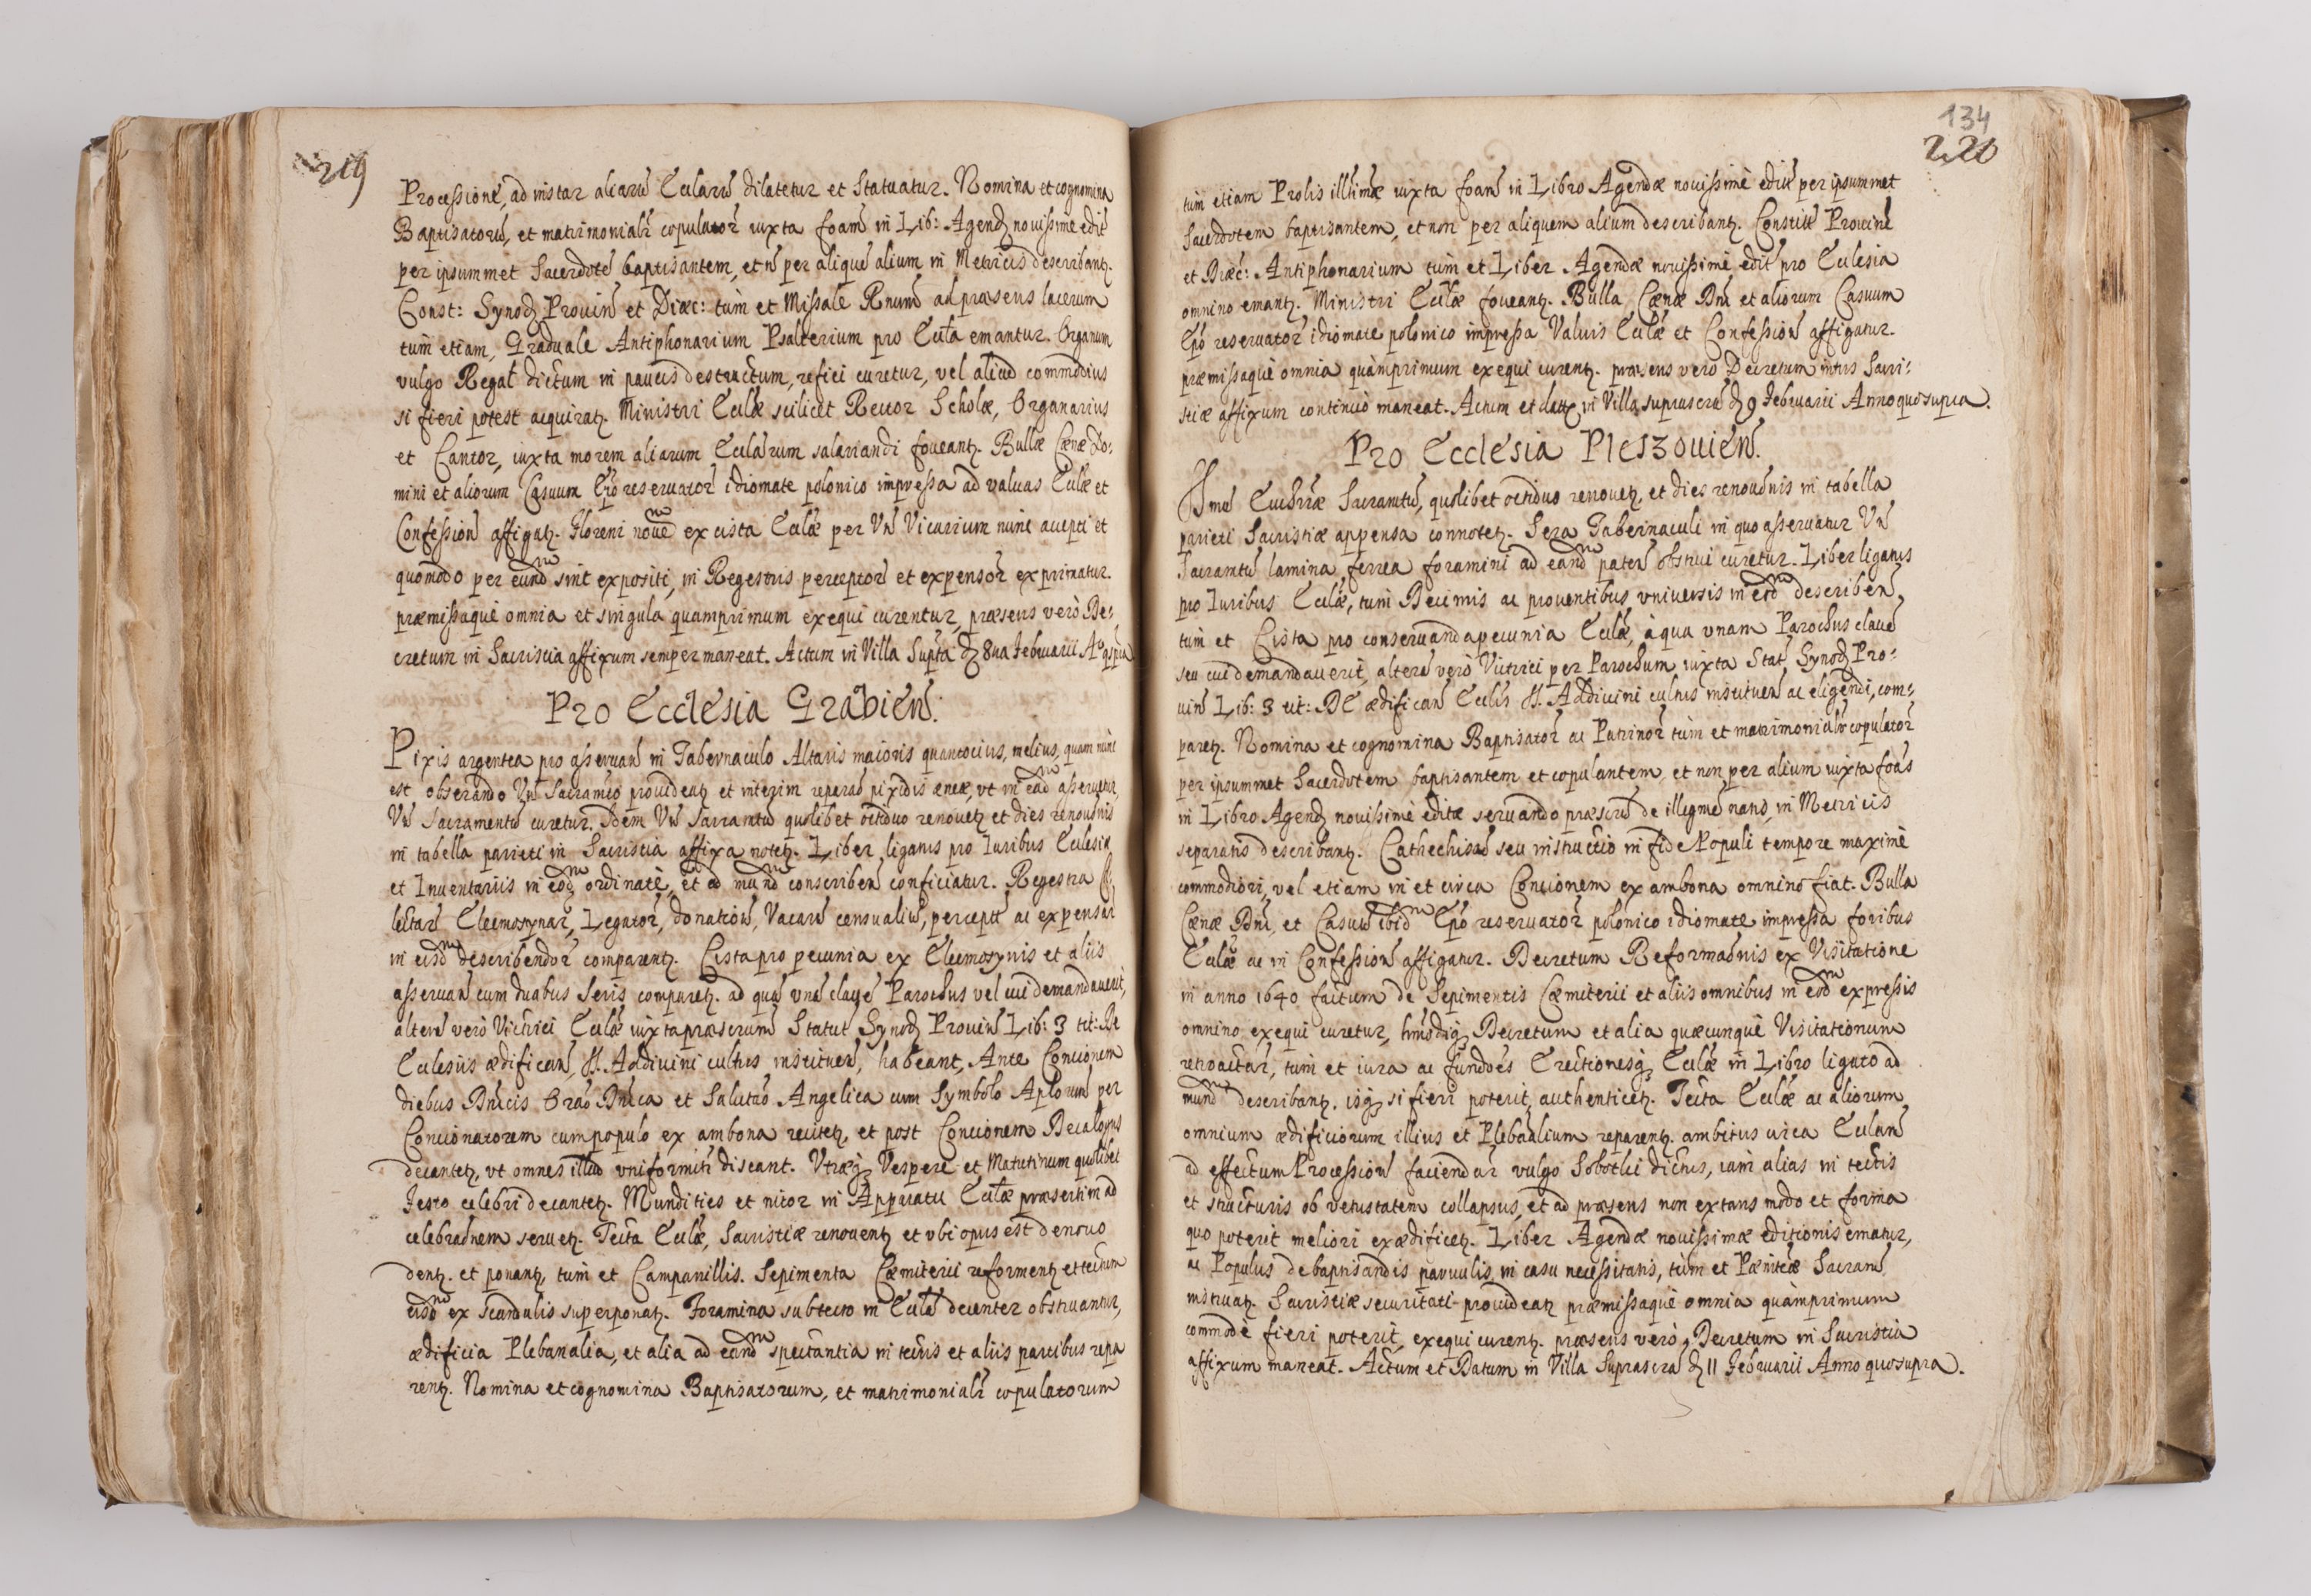 219
Processione, ad instar aliarū Ecclarū dilatetur et Statuatur. Nomina et cognomina
Baptisatorū, et matrimonialr copulator iuxta foam in Lib: Agend novissime edit
per ipsummet Sacerdote baptisantem, et n per alique alium in Metricis describantz.
Const: Synod Provin et Diæc: tum et Missale Rnum ad præsens lacerum
tum etiam, Graduale Antiphonarium Psalterium pro Eccla emantur. Organum
vulgo Regal dictum in paucis destructum, refici curetur, vel aliud commodius
si fieri potest acquiratz. Ministri Ecclæ scilicet Rector Scholæ, Organarius
et Cantor, iuxta morem aliarum Ecclarum salariandi foveantz. Bullæ Cænæ Do:
mini et aliorum Casuum Epo reservator idiomate polonico impressa ad valvas Ecclæ et
Confession affigatz. Floreni nove ex cista Ecclæ per Vn Vicarium nunc accepti et
quomodo per eund sint expositi, in Regestris perceptor et expensor exprimatur.
præmissaque omnia et singula quamprimum exequi curentur, præsens verò De:
cretum in Sacristia affixum semper maneat. Actum in Villa Supta d 8va Februarii Aº qspra
Pro Ecclesia Grabien.
Pixis argentea pro asservan in Tabernaculo Altaris maioris quantocius, melius, quam nunc
est obserando Vn Sacramto provideatz et interim reperad pixidis æneæ, vt in ead asservetur
Vn Sacramentū curetur. Idem Vn Sacramtū quolibet octiduo renovetz et dies renovōnis
in tabella parieti in Sacristia affixa notetz. Liber ligatus pro Iuribus Ecclesiæ
et Inventariis in eod ordinatè, et ad mund conscriben conficiatur. Regestra
lectar Eleemosynar, Legator, donation, Vacan censualiu, percept ac expensar
in eisd describendor comparentz. Cista pro pecunia ex Eleemosynis et aliis
asservan cum duabus Seris comparetz. ad qua una clave Parochus vel cui demandaverit,
altera verò Vitrici Ecclæ iuxta præscrum Statut Synod Provin Lib: 3 tit: De
Ecclesiis ædifican, §. Ad divini cultus instituen, habeant, Ante Concionem
diebus Dnicis Orao Dnica et Salutao Angelica cum Symbolo Aplorum per
Concionatorem cum populo ex ambona recitetz, et post Concionem Decalogus
decantetz, vt omnes illud vniformitr discant. Vtræq Vesperæ et Matutinum quolibet
Festo celebri decantetz. Mundities et nitor in Apparatu Ecclæ præsertim ad
celebraōnem servetz. Tecta Ecclæ, Sacristiæ renoventz et vbi opus est denuo
dentz. et ponantz, tum et Campanillis. Sepimenta Cæmiterii reformentz et tectum
eisd ex scandulis superponatz. Foramina sub tecto in Eccla decenter obstruantur,
ædificia Plebanalia, et alia ad eand spectantia in tectis et aliis partibus repa
rentz. Nomina et cognomina Baptisatorum, et matrimonialr copulatorum
134
220
tum etiam Prolis illtimæ iuxta foam in Libro Agendæ novissimè edit per ipsummet
Sacerdotem baptisantem, et non per aliquem alium describantz. Constit Provinl
et Diæc: Antiphonarium tum et Liber Agendæ novissimè edit pro Ecclesia
omnino emantz. Ministri Ecclæ foveantz. Bulla Cænæ Dni et aliorum Casuum
Epo reservator idiomate polonico impressa Valvis Ecclæ et Confession affigatur.
præmissaque omnia quàmprimum exequi curentz. præsens verò Decretum intus Sacri:
stiæ affixum continuò maneat. Actum et datt in Villa suprascra d 9 Februarii Anno quo supra.
Pro Ecclesia Pleszovien.
Smū Euchræ Sacramtū, quolibet octiduo renovetz, et dies renovōnis in tabella
parieti Sacristiæ appensa connotetz. Sera Tabernaculi in quo asservatur Vn
Sacramtū lamina ferrea foramini ad eand paten obstrui curetur. Liber ligatus
pro Iuribus Ecclæ, tum Decimis ac proventibus vniversis in eod describen,
tum et Cista pro conservanda pecunia Ecclæ, à qua vnam Parochus clave
seu cui demandaverit, altera verò Vitrici per Parochum iuxta Stat Synod Pro:
vin Lib: 3 tit: De ædifican Ecclis §. Ad divini cultus instituen ac eligendi, com:
paretz. Nomina et cognomina Baptisator ac Patrinor tum et matrimonialr copulator
per ipsummet Sacerdotem baptisantem et copulantem et non per alium iuxta foas
in Libro Agend novissimè editæ servando præscru de illegme natis, in Metricis
separatis describantz. Cathechismū seu instructio in fide Populi tempore maximè
commodiori, vel etiam in et circa Concionem ex ambona omnino fiat. Bulla
Cænæ Dni, et Casuu ibid Epo reservator polonico idiomate impressa foribus
Ecclæ ac in Confession affigatur. Decretum Reformaōnis ex Visitatione
in anno 1640 factum de Sepimentis Cæmiterii et aliis omnibus in eod expressis
omnino exequi curetur, hmodiq Decretum et alia quæcunque Visitationum
retroactar, tum et iura ac fundoēs Erectionesq Ecclæ in Libro ligato ad
mund describantz, isq si fieri poterit, authenticetz. Tecta Ecclæ ac aliorum
omnium ædificiorum illius et Plebanalium reparentz. ambitus circa Ecclam
ad effectum Procession faciendar vulgo Sobothi dictus, iam alias in tectis
et structuris ob vetustatem collapsus, et ad præsens non extans modo et forma
quo poterit meliori exædificetz. Liber Agendæ novissimæ editionis ematur,
ac Populus de baptisandis parvulis in casu necessitatis, tum et Pænitæ Sacram
instruatz. Sacristiæ securitati provideatz præmissaque omnia quàmprimum
commodè fieri poterit, exequi curentz. præsens verò Decretum in Sacristia
affixum maneat. Actum et Datum in Villa Suprascra d 11 Februarii Anno quo supra.